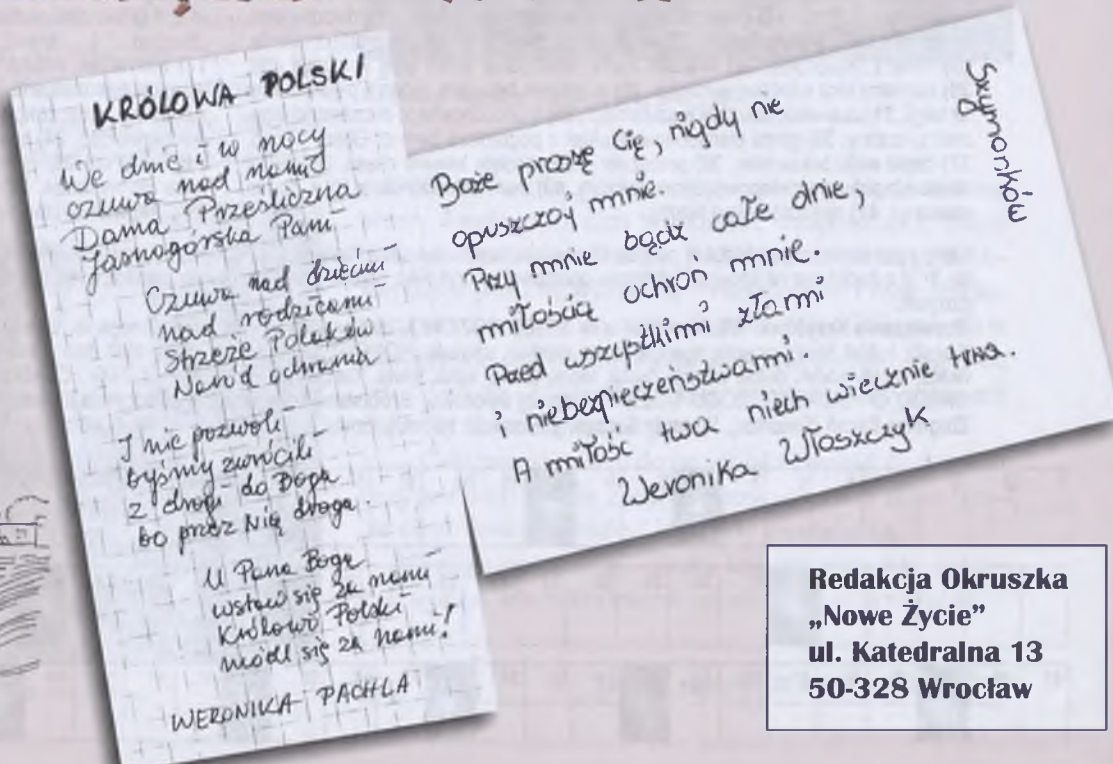 KRÓLOWA POLSKI
We dnie i w nocy
czuwa nad nami
Dama Prześliczna
Jasnogórska Pani
Czuwa nad dziećmi
nad rodzicami
Strzeże Polaków
Naród ochrania
I nie pozwoli
byśmy zwrócili
z drogi do Boga
bo przez Nią droga.
U Pana Boga
wstaw się za nami
Królowo Polski
módl się za nami!
WERONIKA PACHLA
Boże proszę Cię, nigdy nie
opuszczaj mnie.
Przy mnie bądź całe dnie,
miłością ochroń mnie.
Przed wszystkimi złami
i niebezpieczeństwami.
A miłość twa niech wiecznie trwa.
Weronika Włoszczyk
Szymonków
Redakcja Okruszka
„Nowe Życie”
ul. Katedralna 13
50-328 Wrocław